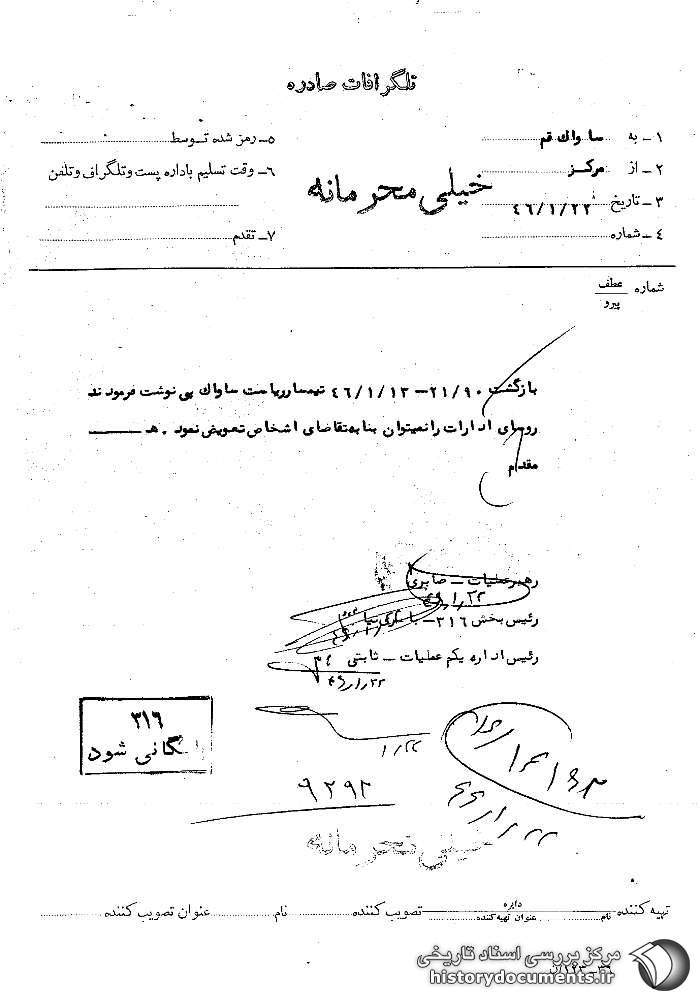 تلگرافات صادره
۱ـ به ساواک قم
۲ـ از مرکز
۳ـ تاریخ ۴۶/۱/۲۲
۴ـ شماره
۵ـ رمز شده توسط
۶ـ وقت تسلیم باداره پست و تلگراف و تلفن
۷ـ تقدم
خیلی محرمانه
شماره عطف
پیرو
بازگشت ۲۱/۹۰ـ۴۶/۱/۱۳ تیمسار ریاست ساواک پی نوشت فرمودند
روسای ادارات را نمیتوان بنا به تقاضای اشخاص تعویض نمود . هـ
مقدم
رهبر عملیات ـ صابری
۴۶/۱/۲۲
رئیس بخش ۳۱۶ـ
رئیس اداره یکم عملیات ـ ثابتی
۴۶/۱/۲۲
۳۱۶
بایگانی شود
۱/۲۲
۹۲۹۲
خیلی محرمانه
تهیه کننده نام دایره عنوان تهیه کننده تصویب کننده نام عنوان تصویب کننده
مرکز بررسی اسناد تاریخی
historydocuments.ir